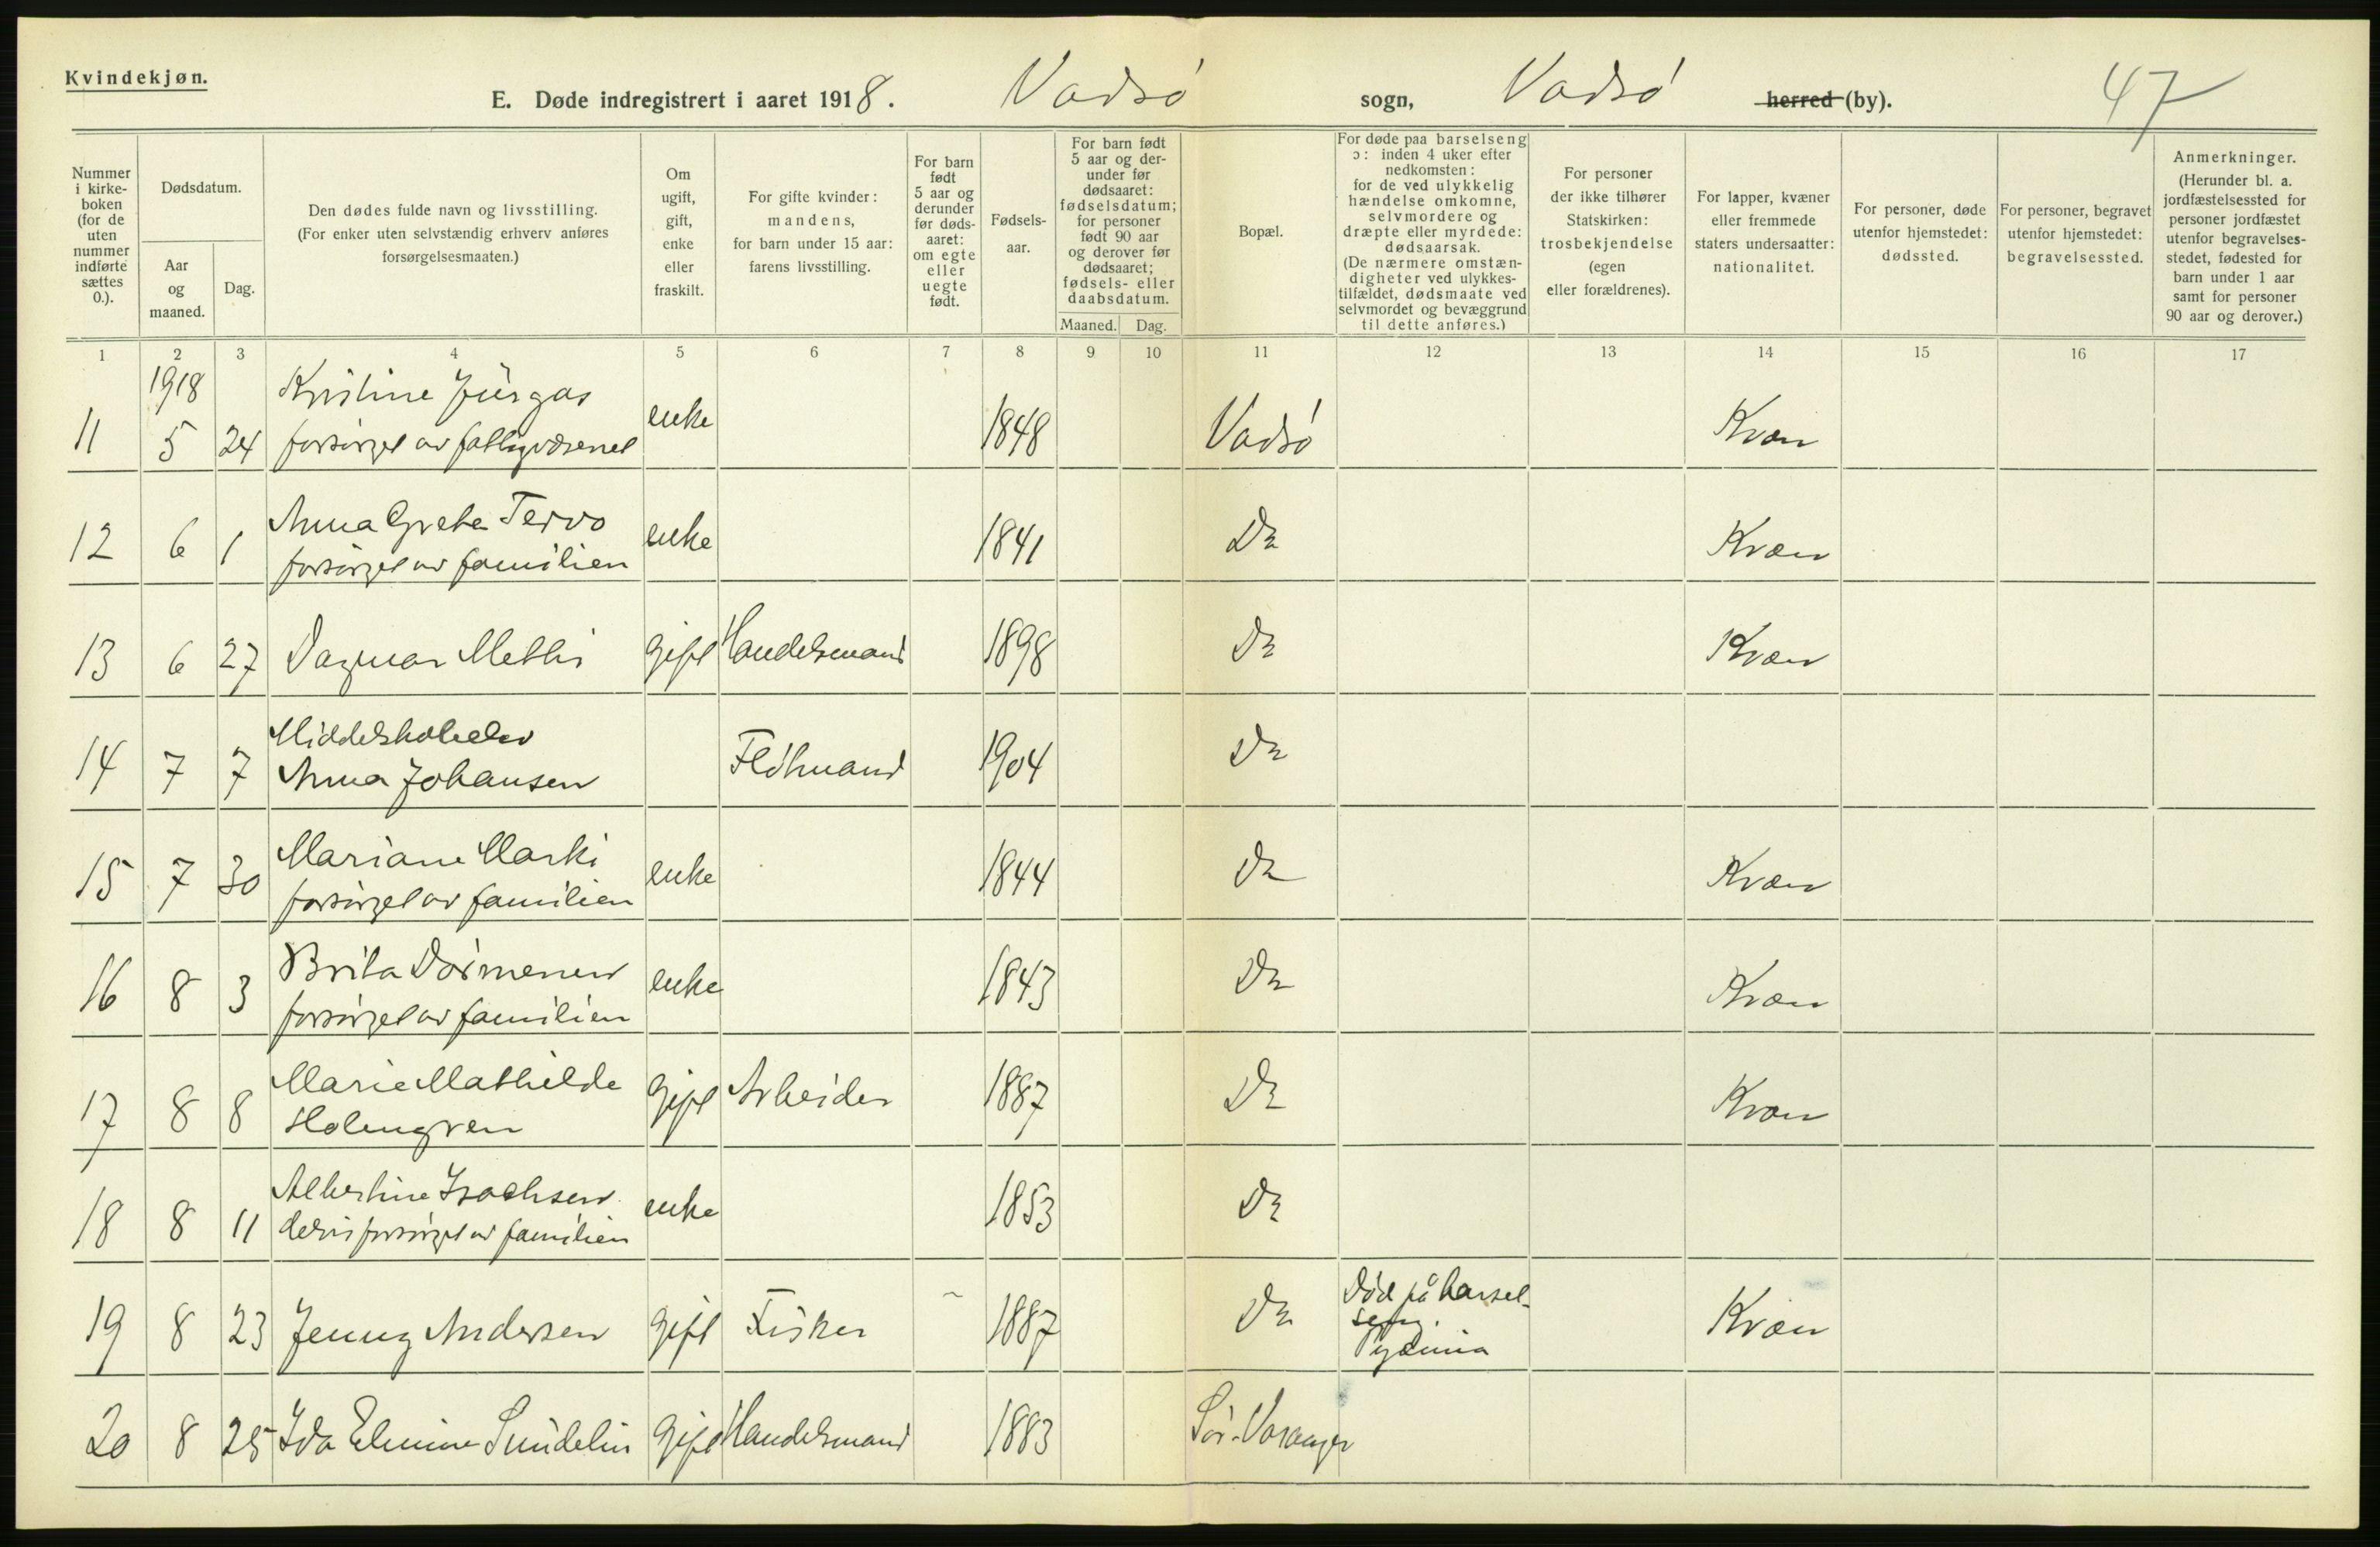 Kvindekjøn.
E. Døde indregistrert i aaret 1918. Vadsø sogn, Vadsø herred (by). 47
Nummer i kirkeboken (for de uten nummer indførte sættes 0.).
Dødsdatum.
Aar og maaned.
Dag.
Den dødes fulde navn og livsstilling.
(For enker uten selvstændig erhverv anføres forsørgelsesmaaten.)
Om ugift, gift, enke eller fraskilt.
For gifte kvinder: mandens, for barn under 15 aar: farens livsstilling.
For barn født 5 aar og derunder før dødsaaret: om egte eller uegte født.
Fødselsaar.
For barn født 5 aar og derunder før dødsaaret: fødselsdatum; for personer født 90 aar og derover før dødsaaret; fødsels- eller daabsdatum.
Maaned. Dag.
Bopæl.
For døde paa barselseng ɔ: inden 4 uker efter nedkomsten: for de ved ulykkelig hændelse omkomne, selvmordere og dræpte eller myrdede: dødsaarsak. (De nærmere omstændigheter ved ulykkestilfældet, dødsmaate ved selvmordet og bevæggrund til dette anføres.)
For personer der ikke tilhører Statskirken: trosbekjendelse (egen eller forældrenes).
For lapper, kvæner eller fremmede staters undersaatter: nationalitet.
For personer, døde utenfor hjemstedet: dødssted.
For personer, begravet utenfor hjemstedet: begravelsessted.
Anmerkninger. (Herunder bl. a. jordfæstelsessted for personer jordfæstet utenfor begravelsesstedet, fødested for barn under 1 aar samt for personer 90 aar og derover.)
1 2 3 4 5 6 7 8 9 10 11 12 13 14 15 16 17
1918
11 5 24 Kristine Jürgas forsørget av fattigvæsenet enke 1848 Vadsø Kvæn
12 6 1 Anna Greta Tervo forsørget av familien enke 1841 Do Kvæn
13 6 27 Dagmar Mettis gift Handelsmand 1898 Do Kvæn
14 7 7 Middelskoleelev Anna Johansen Flåmand 1904 Do
15 7 30 Mariane Marki forsørget av familien enke 1844 Do Kvæn
16 8 3 Brita Dørmenen forsørget av familien enke 1843 Do Kvæn
17 8 8 Marie Mathilde Holmgren gift Arbeider 1887 Do Kvæn
18 8 11 Albertine Isachsen delvis forsørget av familien enke 1853 Do
19 8 23 Jenny Andersen gift Fisker 1887 Do Død på barselseng. Pyæmia Kvæn
20 8 25 Ida Elmine Sundelin gift Handelsmand 1883 Sør-Varanger